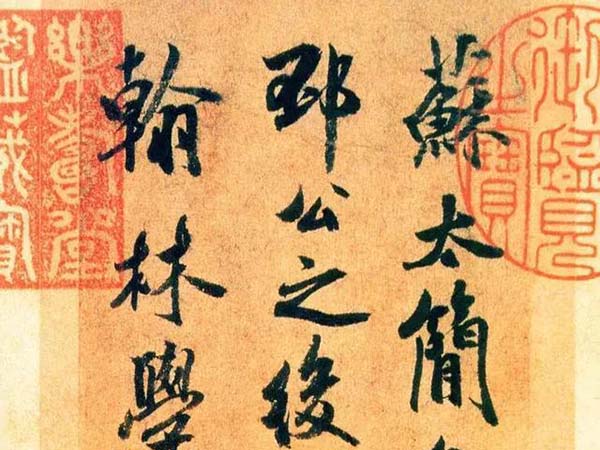 御覽
之寶
蘇太簡
邳公之後
翰林學
樂壽堂
鑑藏寶